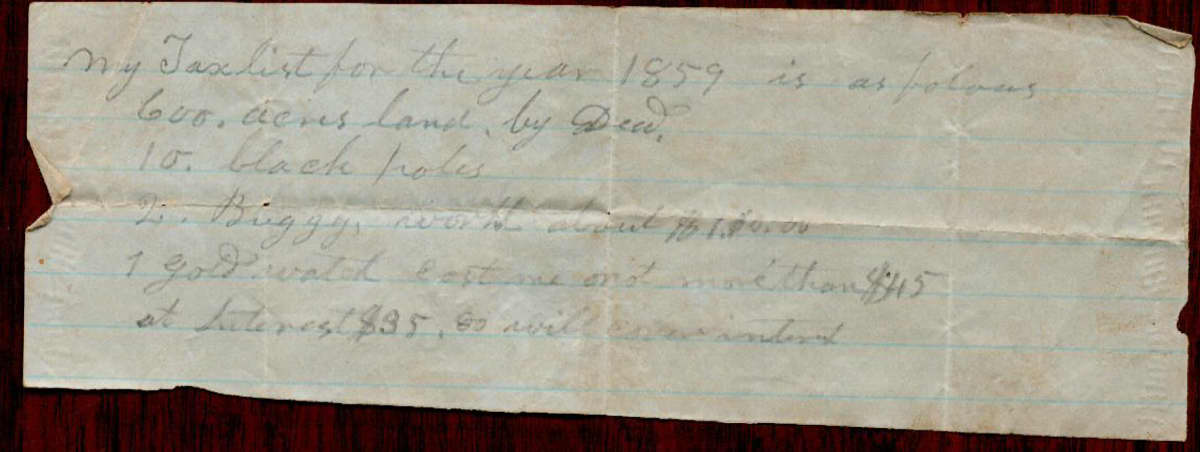 My Taxlist for the year 1859 is as folows
600. acres land, by Deed,
10. black poles
2. Buggy, worth about $
1 gold watch cost me not more than $45
at Interest $35.00 will cover interest